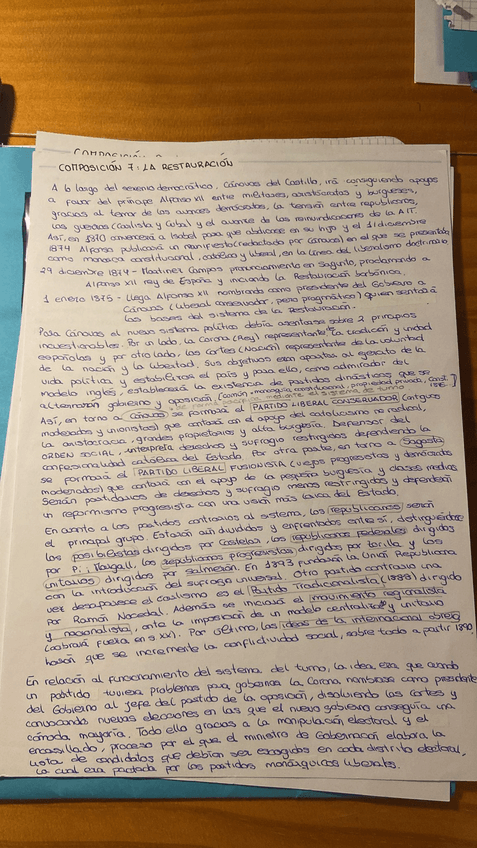 COMPOSICIÓN 7: LA RESTAURACIÓN
A lo largo del sexenio democrático, Cánovas del Castillo, irá consiguiendo apoyos
a favor del príncipe Alfonso XII entre militares, aristócratas y burgueses,
gracias al temor de los avances demócratas, la tensión entre republicanos,
las guerras (Carlista y Cuba) y el avance de las reivindicaciones de la A.I.T.
Así, en 1870 convencerá a Isabel para que abdicase en su hijo y el 1/diciembre
1874 Alfonso publicará un manifiesto (redactado por Cánovas) en el que se presentaba
como monarca constitucional, católico y liberal, en la línea del liberalismo doctrinario
29 diciembre 1874 - Martínez Campos pronunciamiento en Sagunto, proclamando a
Alfonso XII rey de España y iniciando la Restauración borbónica.
1 enero 1875 - Llega Alfonso XII nombrando como presidente del Gobierno a
Cánovas (liberal conservador, pero pragmático) quien sentará
las bases del sistema de la Restauración.
Para Cánovas el nuevo sistema político debía asentarse sobre 2 principios
incuestionables. Por un lado, la Corona (Rey) representante de la tradición y unidad
españolas y por otro lado, las Cortes (Nación) representante de la voluntad
de la nación y la libertad. Sus objetivos eran apartar al ejército de la
vida política y estabilizar el país y para ello, como admirador del
modelo inglés, establecerá la existencia de partidos dinásticos que se
alternasen gobierno y oposición (común: monarquía constitucional, propiedad privada, Const. 1876)
mediante el sistema de turno
Así, en torno a Cánovas se formará el PARTIDO LIBERAL CONSERVADOR (antiguos
moderados y unionistas) que contará con el apoyo del catolicismo no radical,
la aristocracia, grandes propietarios y alta burguesía. Defensor del
ORDEN SOCIAL, interpreta derechos y sufragio restringidos defendiendo la
confesionalidad católica del Estado. Por otra parte, en torno a Sagasta
se formará el PARTIDO LIBERAL FUSIONISTA (viejos progresistas y demócratas
moderados) que contará con el apoyo de la pequeña burguesía y clases medias
Serán partidarios de derechos y sufragio menos restringidos y defenderán
un reformismo progresista con una visión más laica del Estado.
En cuanto a los partidos contrarios al sistema, los republicanos serán
el principal grupo. Estarán aún divididos y enfrentados entre sí, distinguiéndose
los posibilistas dirigidos por Castelar, los republicanos federales dirigidos
por Pi i Margall, los republicanos progresistas dirigidos por Zorrilla y los
unitarios dirigidos por Salmerón. En 1893 fundarán la Unión Republicana
con la introducción del sufragio universal. Otro partido contrario una
vez desaparece el carlismo es el Partido Tradicionalista (1888) dirigido
por Ramón Nocedal. Además se iniciará el movimiento regionalista
y nacionalista, ante la imposición de un modelo centralista y unitario
(cobrará fuerza en s XX). Por último, las ideas de la internacional obrera
harán que se incremente la conflictividad social, sobre todo a partir 1890.
En relación al funcionamiento del sistema del turno, la idea era que cuando
un partido tuviera problemas para gobernar la Corona nombrase como presidente
del Gobierno al jefe del partido de la oposición, disolviendo las Cortes y
convocando nuevas elecciones en las que el nuevo gobierno conseguía una
cómoda mayoría. Todo ello gracias a la manipulación electoral y el
encasillado, proceso por el que el ministro de Gobernación elabora la
lista de candidatos que debían ser escogidos en cada distrito electoral,
la cual era pactada por los partidos monárquicos liberales.